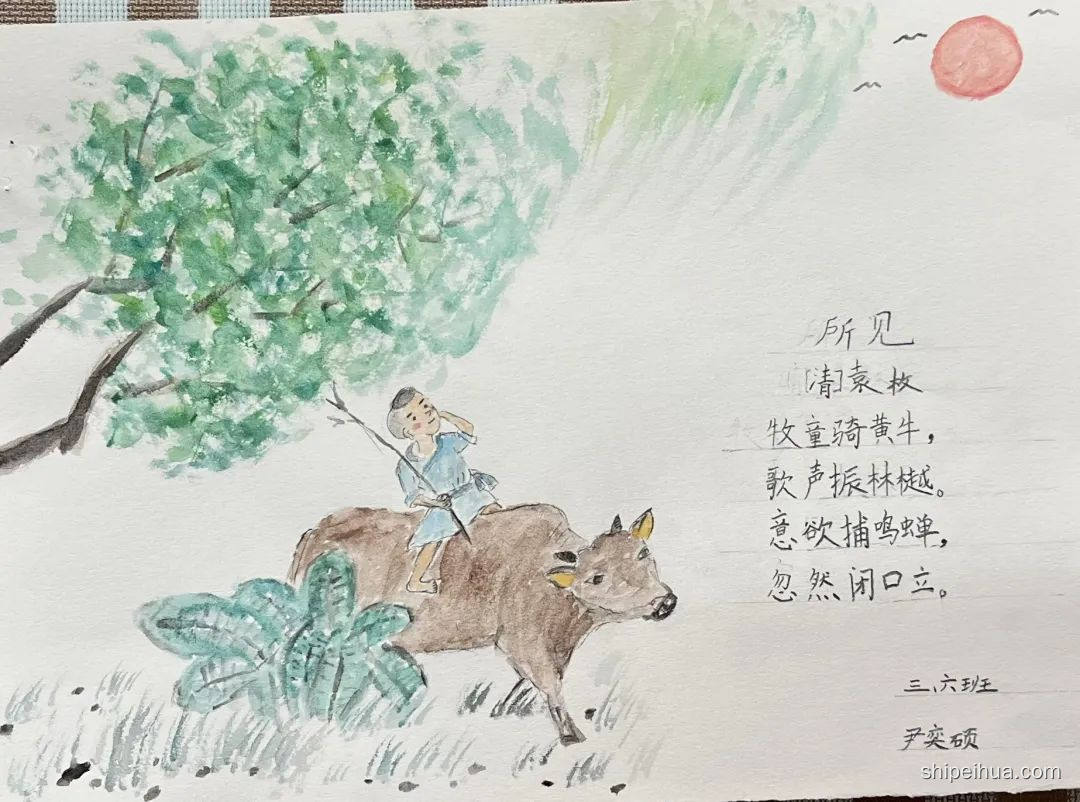 所见
[清]袁枚
牧童骑黄牛，
歌声振林樾。
意欲捕鸣蝉，
忽然闭口立。
三、六班
尹奕硕
shipeihua.com